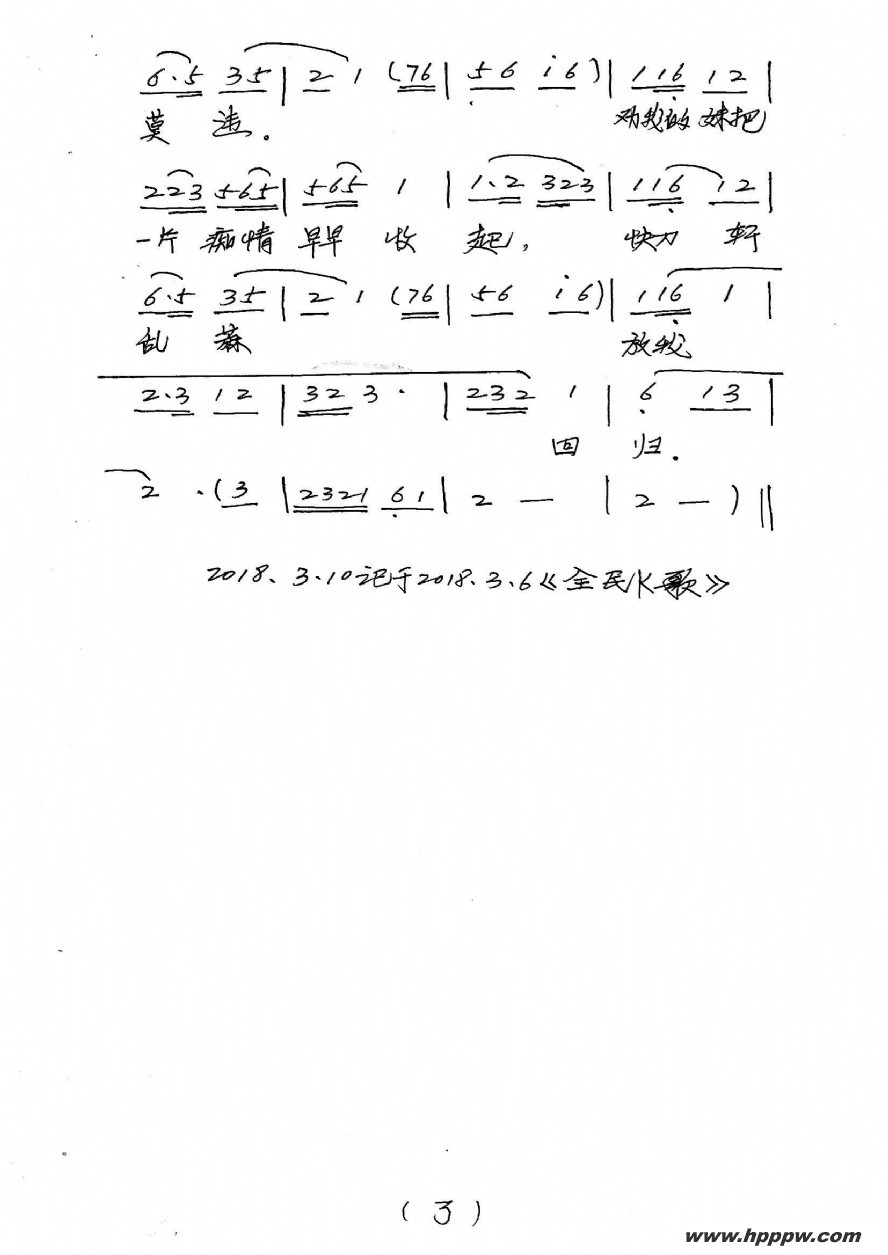 6·5 35 | 2 1 (76 | 56 i6) | 116 12 |
莫 违。 劝我的妹把
223 565 | 565 1 | 1·2 323 | 116 12 |
一片 痴情 早早 收 起, 快刀 斩
6·5 35 | 2 1 (76 | 56 i6) | 116 1 |
乱 麻 放我
2·3 12 | 323· | 232 1 | 6 13 |
回 归.
2 ·(3 | 2321 61 | 2 — | 2 — ) ‖
2018、3·10记于2018.3.6《全民K歌》
(3)
www.hpppw.com